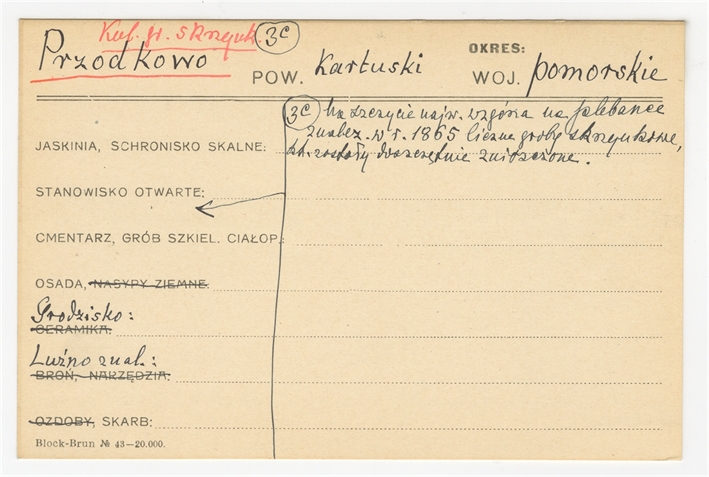 Kul. gr. skrzynk. 3c
Przodkowo
POW. Kartuski
OKRES:
WOJ. pomorskie
3c Na szczycie najw. wzgórza na plebance
znalez. w r. 1865 liczne groby skrzynkowe,
kt. zostały doszczętnie zniszczone.
JASKINIA, SCHRONISKO SKALNE:
STANOWISKO OTWARTE:
CMENTARZ, GRÓB SZKIEL. CIAŁOP.:
OSADA, NASYPY ZIEMNE:
Grodzisko:
CERAMIKA:
Luźno znal.:
BROŃ, NARZĘDZIA:
OZDOBY, SKARB:
Block-Brun № 43—20.000.